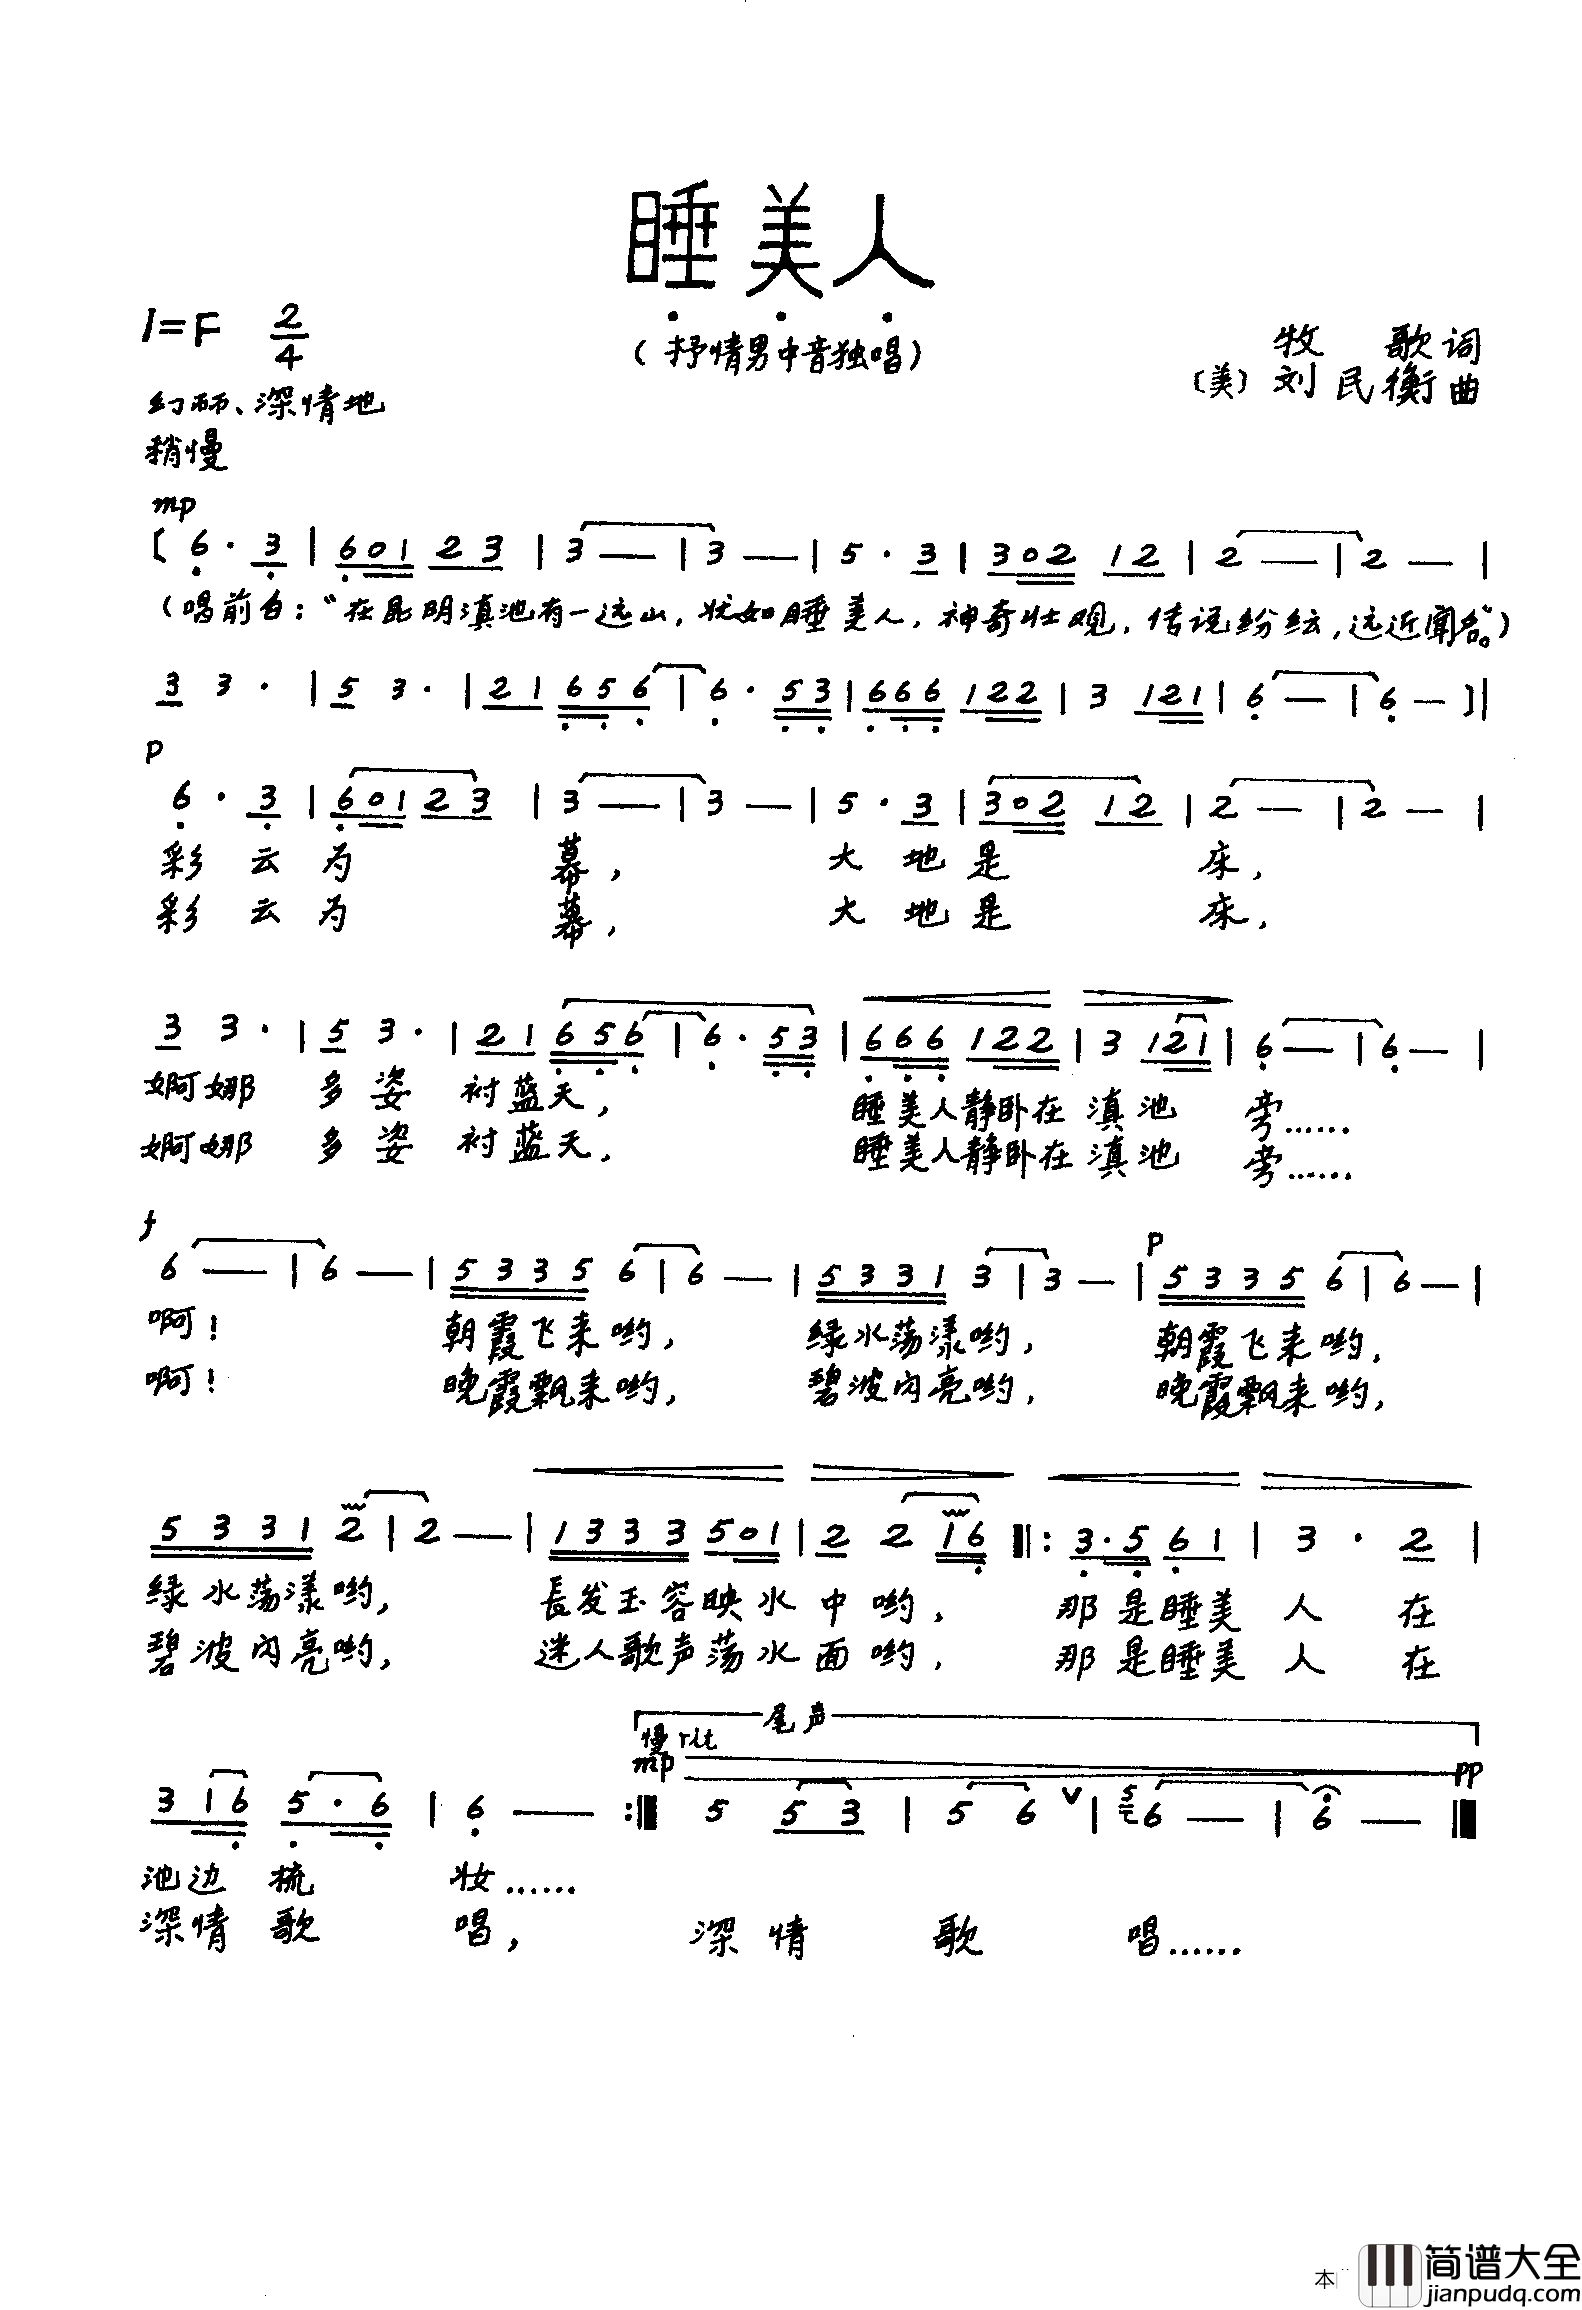 睡美人
1=F 2/4
(抒情男中音独唱)
牧歌词
〔美〕刘民衡曲
幻丽、深情地
稍慢
mp
〔6· 3 | 601 23 | 3 — | 3 — | 5· 3 | 302 12 | 2 — | 2 — |
(唱前白:“在昆明滇池有一远山,状如睡美人,神奇壮观,传说纷纭,远近闻名。”)
3 3· | 5 3· | 21 656 | 6· 53 | 666 122 | 3 121 | 6 — | 6 — 〕|
p
6· 3 | 601 23 | 3 — | 3 — | 5· 3 | 302 12 | 2 — | 2 — |
彩云为幕, 大地是床,
彩云为幕, 大地是床,
3 3· | 5 3· | 21 656 | 6· 53 | 666 122 | 3 121 | 6 — | 6 — |
婀娜多姿衬蓝天, 睡美人静卧在滇池旁……
婀娜多姿衬蓝天, 睡美人静卧在滇池旁……
f p
6 — | 6 — | 5335 6 | 6 — | 5331 3 | 3 — | 5335 6 | 6 — |
啊! 朝霞飞来哟, 绿水荡漾哟, 朝霞飞来哟,
啊! 晚霞飘来哟, 碧波闪亮哟, 晚霞飘来哟,
5331 2 | 2 — | 1333 501 | 2 2 16 ‖: 3·5 61 | 3· 2 |
绿水荡漾哟, 長发玉容映水中哟, 那是睡美人在
碧波闪亮哟, 迷人歌声荡水面哟, 那是睡美人在
尾声
慢 rit
mp pp
3 16 5·6 | 6 — :‖ 5 53 | 5 6 ∨ | 5 6 — | 6 — ‖
池边梳妆……
深情歌唱, 深情歌唱……
本
简谱大全
jianpudq.com